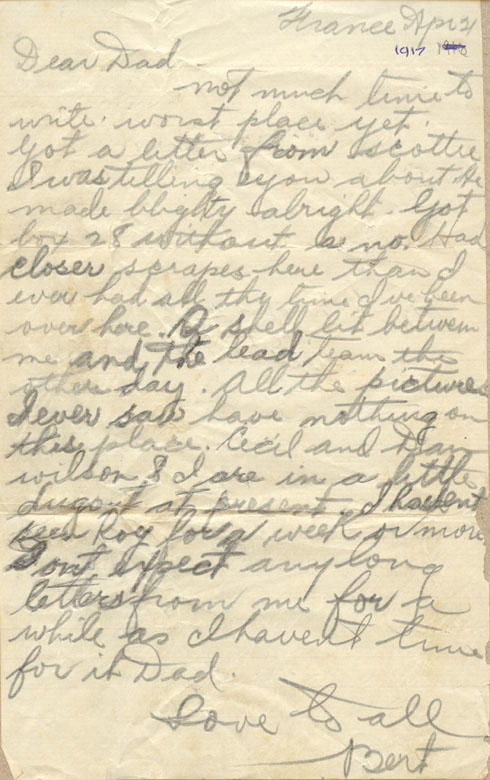 France Apr 21
1917 1918
Dear Dad
not much time to
write. worst place yet.
Got a letter from Scottie
I was telling you about He
made blighty alright. Got
box 28 without a no. Had
closer scrapes here than I
ever had all thy time I've been
over here. A shell lit between
me and the lead team the
other day. All the pictures
I ever saw have nothing on
this place. Cecil and
Wilson & I are in a little
dugout at present. I havent
seen Roy for a week or more
Dont expect any long
letters from me for a
while as I havent time
for it Dad.
Love to all
Bert